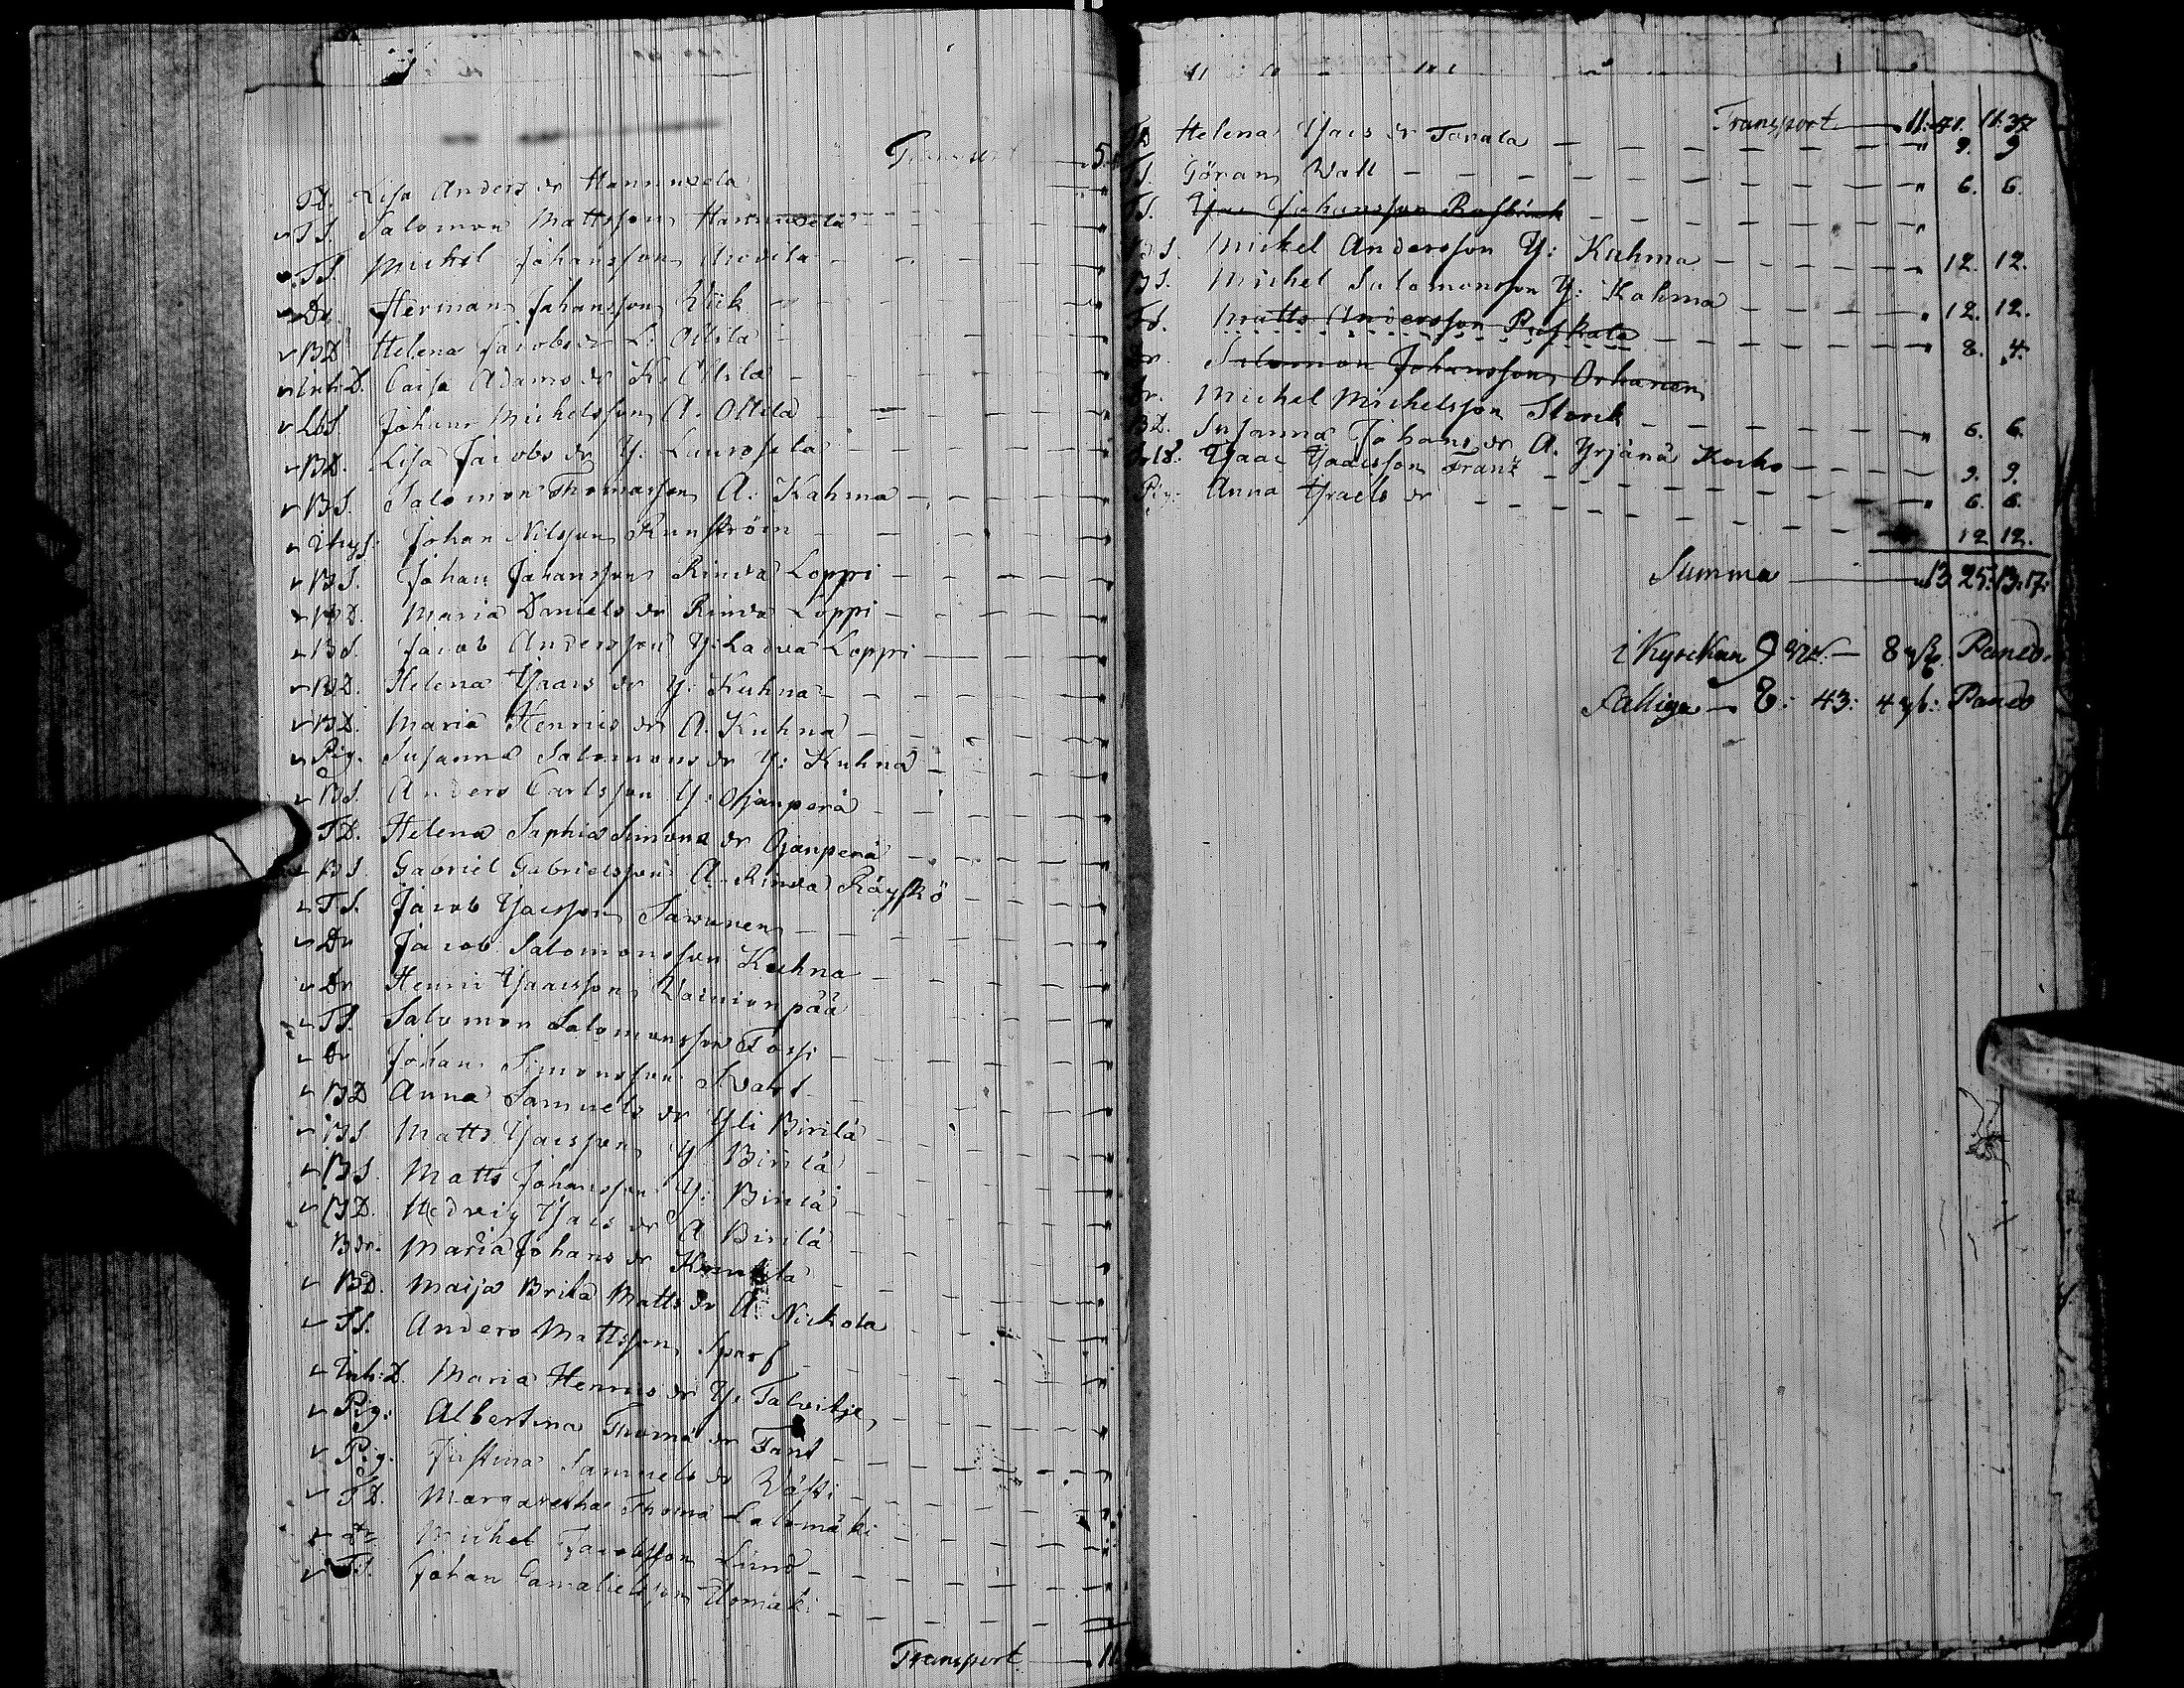 Transport — 5
TD. Lisa Anders dr Hannuxela
TS. Salomon Mattsson Hannuxela
TS. Michel Johansson Anoila
Dr. Herman Johansson Wik
BD Helena Jacobs dr L. Ollila
Inh:D. Caisa Adams dr K. Ollila
LbS. Johan Michelsson A. Ollila
BD. Lisa Jacobs dr Y. Laurosela
BS. Salomon Thomasson A. Kahma
Inhys: Johan Nilsson Runström
BS. Johan Johansson Rinda Loppi
BD. Maria Daniels dr Rinda Loppi
BS. Jacob Andersson Y: Ladva Loppi
BD. Helena Isaacs dr Y. Kuhna
BD. Maria Henrics dr A. Kuhna
Pig. Susanna Salomons dr Y: Kuhna
BS. Anders Carlsson Y: Ojanperä
TD. Helena Saphia Simons dr Ojanperä
BS Gabriel Gabrielsson A. Rinda Räyskö
TS. Jacob Isacsson Sawunen
Dr Jacob Salomonsson Kuhna
Dr Henric Isaacsson Wainionpää
TS. Salomon Salomonsson Tossi
Dr Johan Simonsson Svart
BD Anna Samuels dr Yli Birilä
BS Matts Isacsson Y. Birilä
BS Matts Johansson Y: Birilä
BD. Hedvig Isacs dr A Birilä
Bdr. Maria Johans dr
BD. Maija Brita Matts dr A. Nickola
SS. Anders Mattsson Sparf
Inh:D. Maria Henrics dr Y. Talvitje
Pig: Albertina Thoma dr Fant
Pig. Justina Samuels dr Wästi
TD. Margaretha Thoma Lalomäki
Dr Michel Jacobsson Lind
TS. Johan Gamalielsson Elomäki
Transport — 11
Transport — 11. 41. 11. 37
TD Helena Isacs dr Tanala — 9. 9
TS. Göran Wall — 6. 6.
TS. Isac Johansson Rosbäck
BS. Mickel Andersson Y: Kuhma — 12. 12.
BS. Michel Salomonsson Y: Kahma — 12. 12.
TS. Matts Andersson Paskala — 8. 4.
Dr. Salomon Johansson Orhanen
Dr. Michel Michelsson Storck — 6. 6.
BD. Susanna Johans dr A. Yrjänä Kocko — 9. 9.
Isaac Isaacsson Franz — 6. 6.
Pig. Anna Israels dr — 12 12.
Summa — 13 25: 13: 17:
i Kyrckan 9 — 8 Panco.
Fallige — 8: 43: 4 Panco